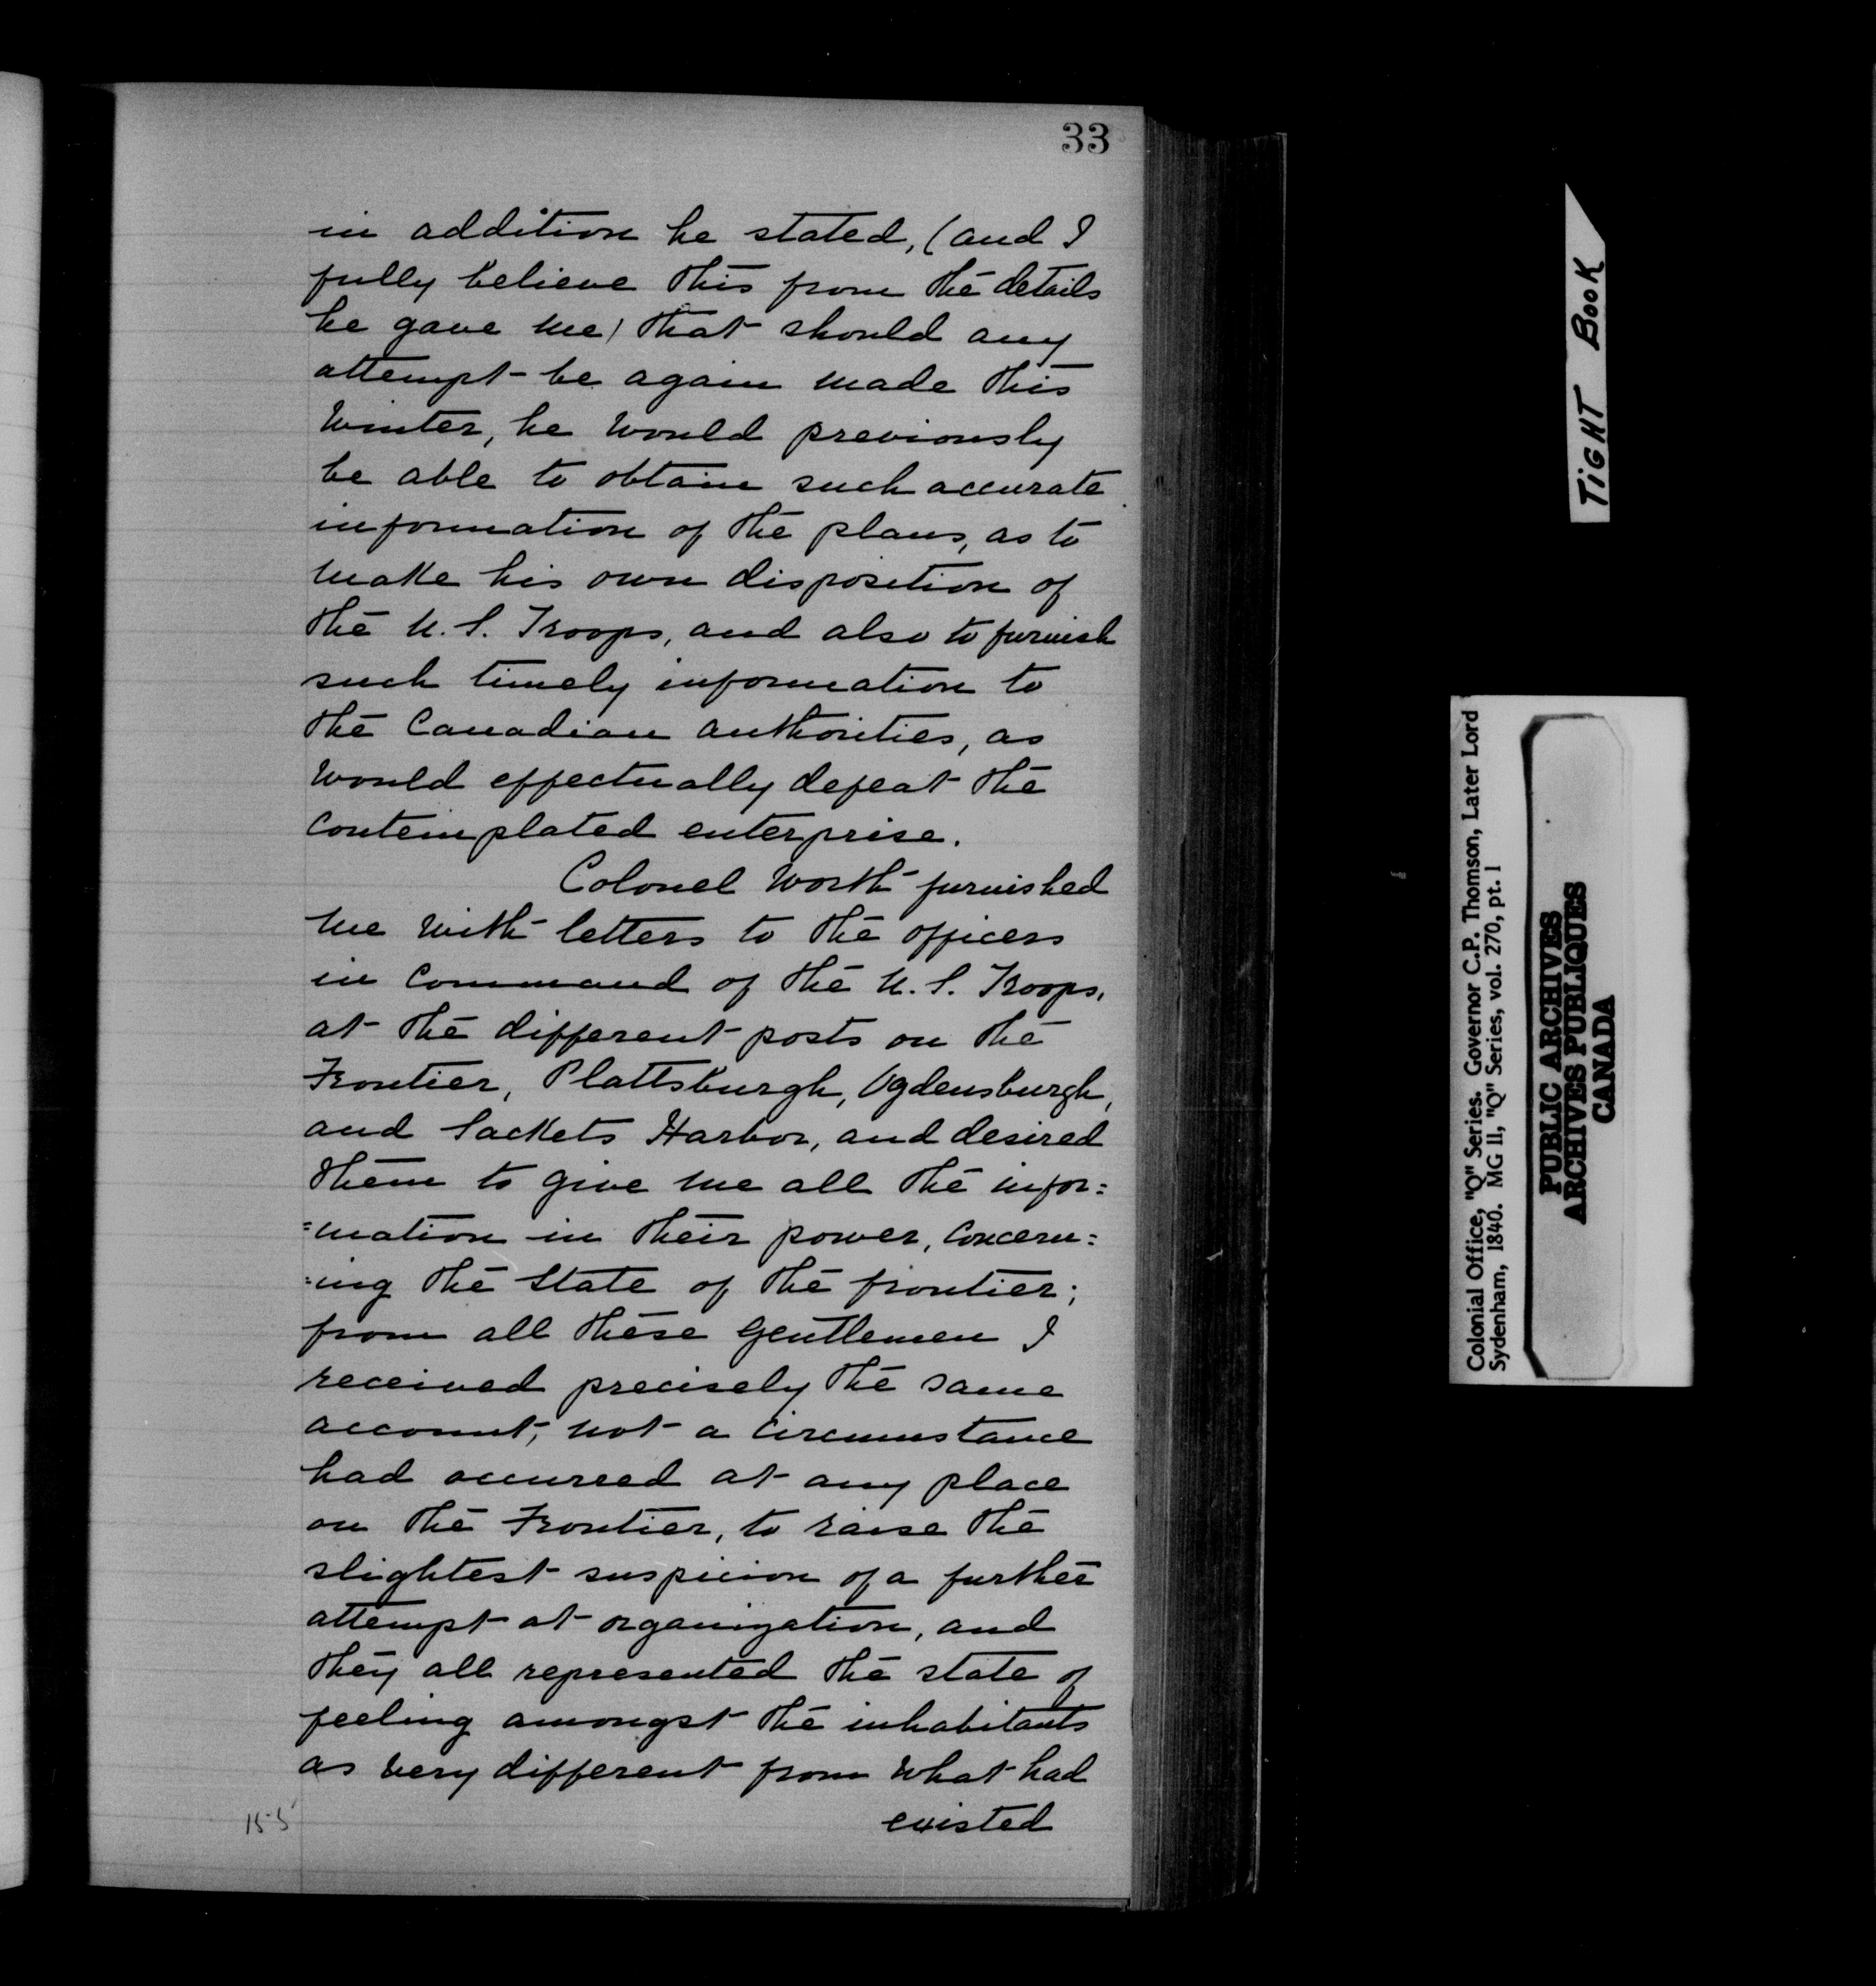 33
in addition he stated, (and I
fully believe this from the details
he gave me) that should any
attempt be again made this
Winter, he would previously
be able to obtain such accurate
information of the plans, as to
make his own disposition of
the U.S. Troops, and also to furnish
such timely information to
the Canadian authorities, as
would effectually defeat the
contemplated enterprise.
Colonel Worth furnished
me with letters to the officers
in Command of the U.S. Troops,
at the different posts on the
Frontier, Plattsburgh, Ogdensburgh,
and Sackets Harbor, and desired
them to give me all the infor=
=mation in their power, concern=
=ing the State of the frontier;
from all these gentlemen I
received precisely the same
account, not a circumstance
had occurred at any place
on the Frontier, to raise the
slightest suspicion of a further
attempt at organization, and
they all represented the state of
feeling amongst the inhabitants
as very different from what had
existed
155
TIGHT BOOK
Colonial Office, "Q" Series. Governor C.P. Thomson, Later Lord
Sydenham, 1840. MG 11, "Q" Series, vol. 270, pt. 1
PUBLIC ARCHIVES
ARCHIVES PUBLIQUES
CANADA